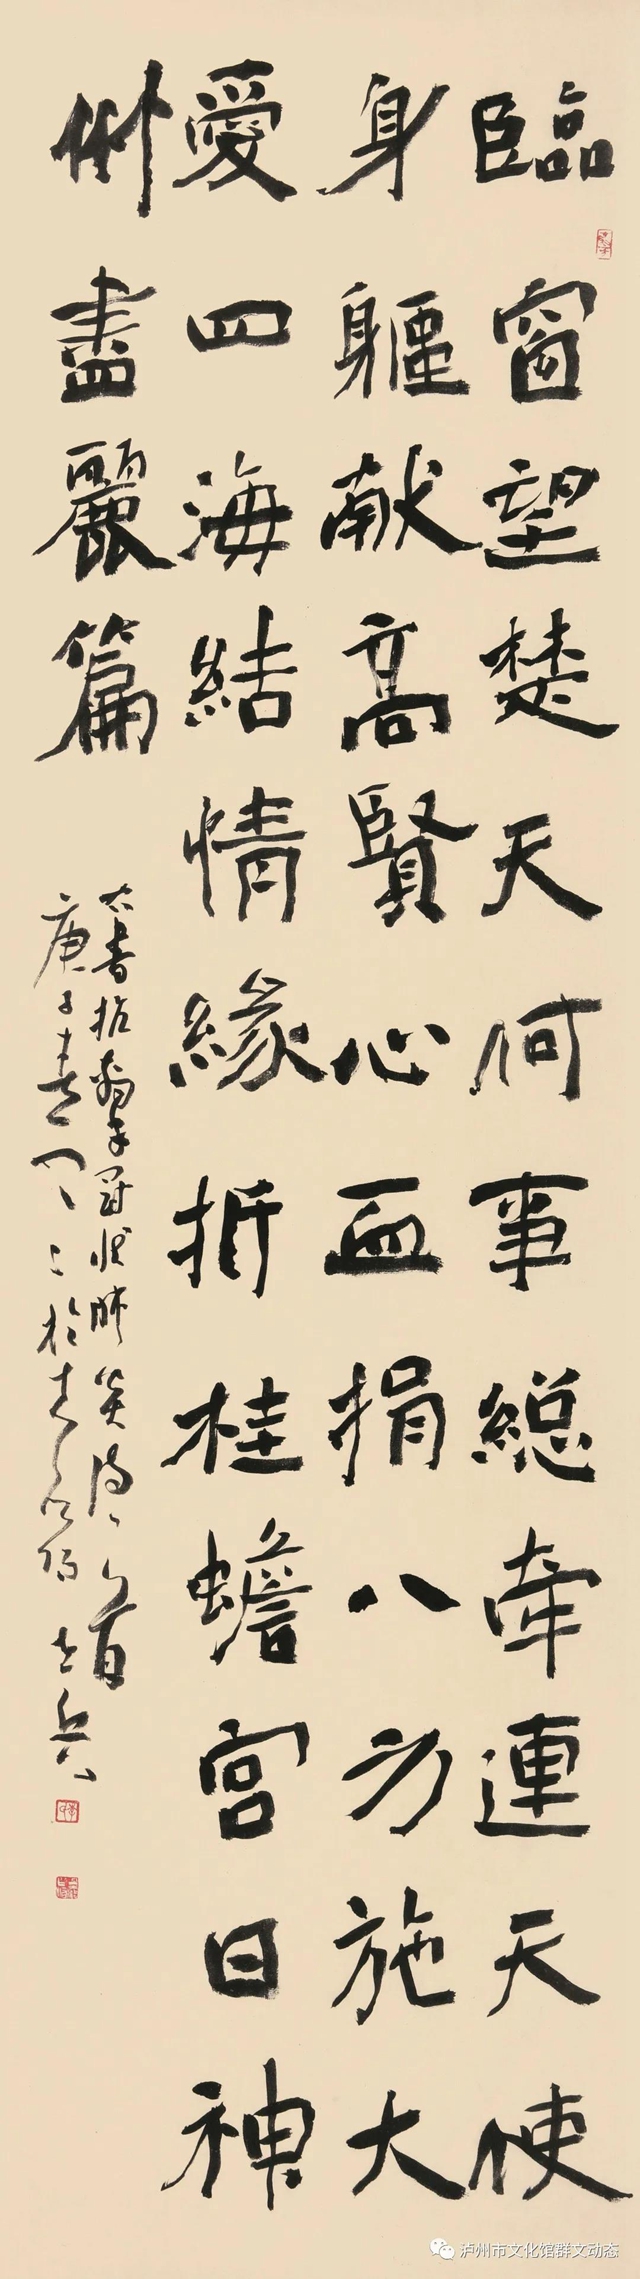 臨窗望楚天何事総牵連天使
身軀献高賢心血捐八方施大
愛四海結情緣折桂蟾宮日神
州盡麗篇
冠状肺炎
庚子春
泸州市文化馆群文动态